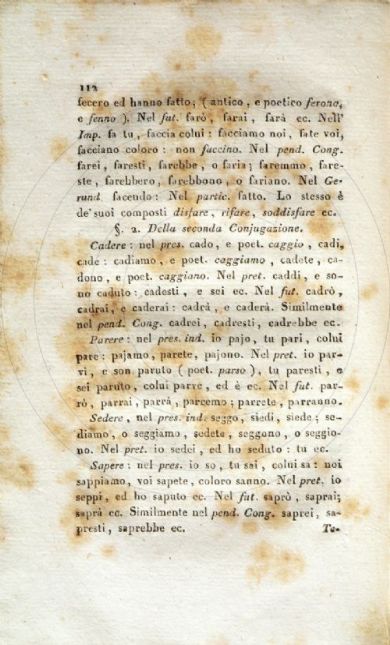 112
fecero ed hanno fatto; ( antico, e poetico ferono,
e fenno ). Nel fut. farò, farai, farà ec. Nell'
Imp. fa tu, faccia colui: facciamo noi, fate voi,
facciano coloro: non faccino. Nel pend. Cong.
farei, faresti, farebbe, o faria; faremmo, fare-
ste, farebbero, farebbono, o fariano. Nel Ge-
rund facendo: Nel partic. fatto. Lo stesso è
de' suoi composti disfare, rifare, soddisfare ec.
§. 2. Della seconda Conjugazione.
Cadere: nel pres. cado, e poet. caggio, cadi,
cade: cadiamo, e poet. caggiamo, cadete, ca-
dono, e poet. caggiano. Nel pret. caddi, e so-
no caduto: cadesti, e sei ec. Nel fut. cadrò,
cadrai, e caderai: cadrà, e caderà. Similmente
nel pend. Cong. cadrei, cadresti, cadrebbe ec.
Parere: nel pres. ind. io pajo, tu pari, colui
pare: pajamo, parete, pajono. Nel pret. io par-
vi, e son paruto ( poet. parso ), tu paresti, e
sei paruto, colui parve, ed è ec. Nel fut. par-
rò, parrai, parrà, parremo; parrete, parranno.
Sedere, nel pres. ind. seggo, siedi, siede; se-
diamo, o seggiamo, sedete, seggono, o seggio-
no. Nel pret. io sedei, ed ho seduto: tu ec.
Sapere: nel pres. io so, tu sai, colui sa: noi
sappiamo, voi sapete, coloro sanno. Nel pret. io
seppi, ed ho saputo ec. Nel fut. saprò, saprai;
saprà ec. Similmente nel pend. Cong. saprei, sa-
presti, saprebbe ec.
Te-